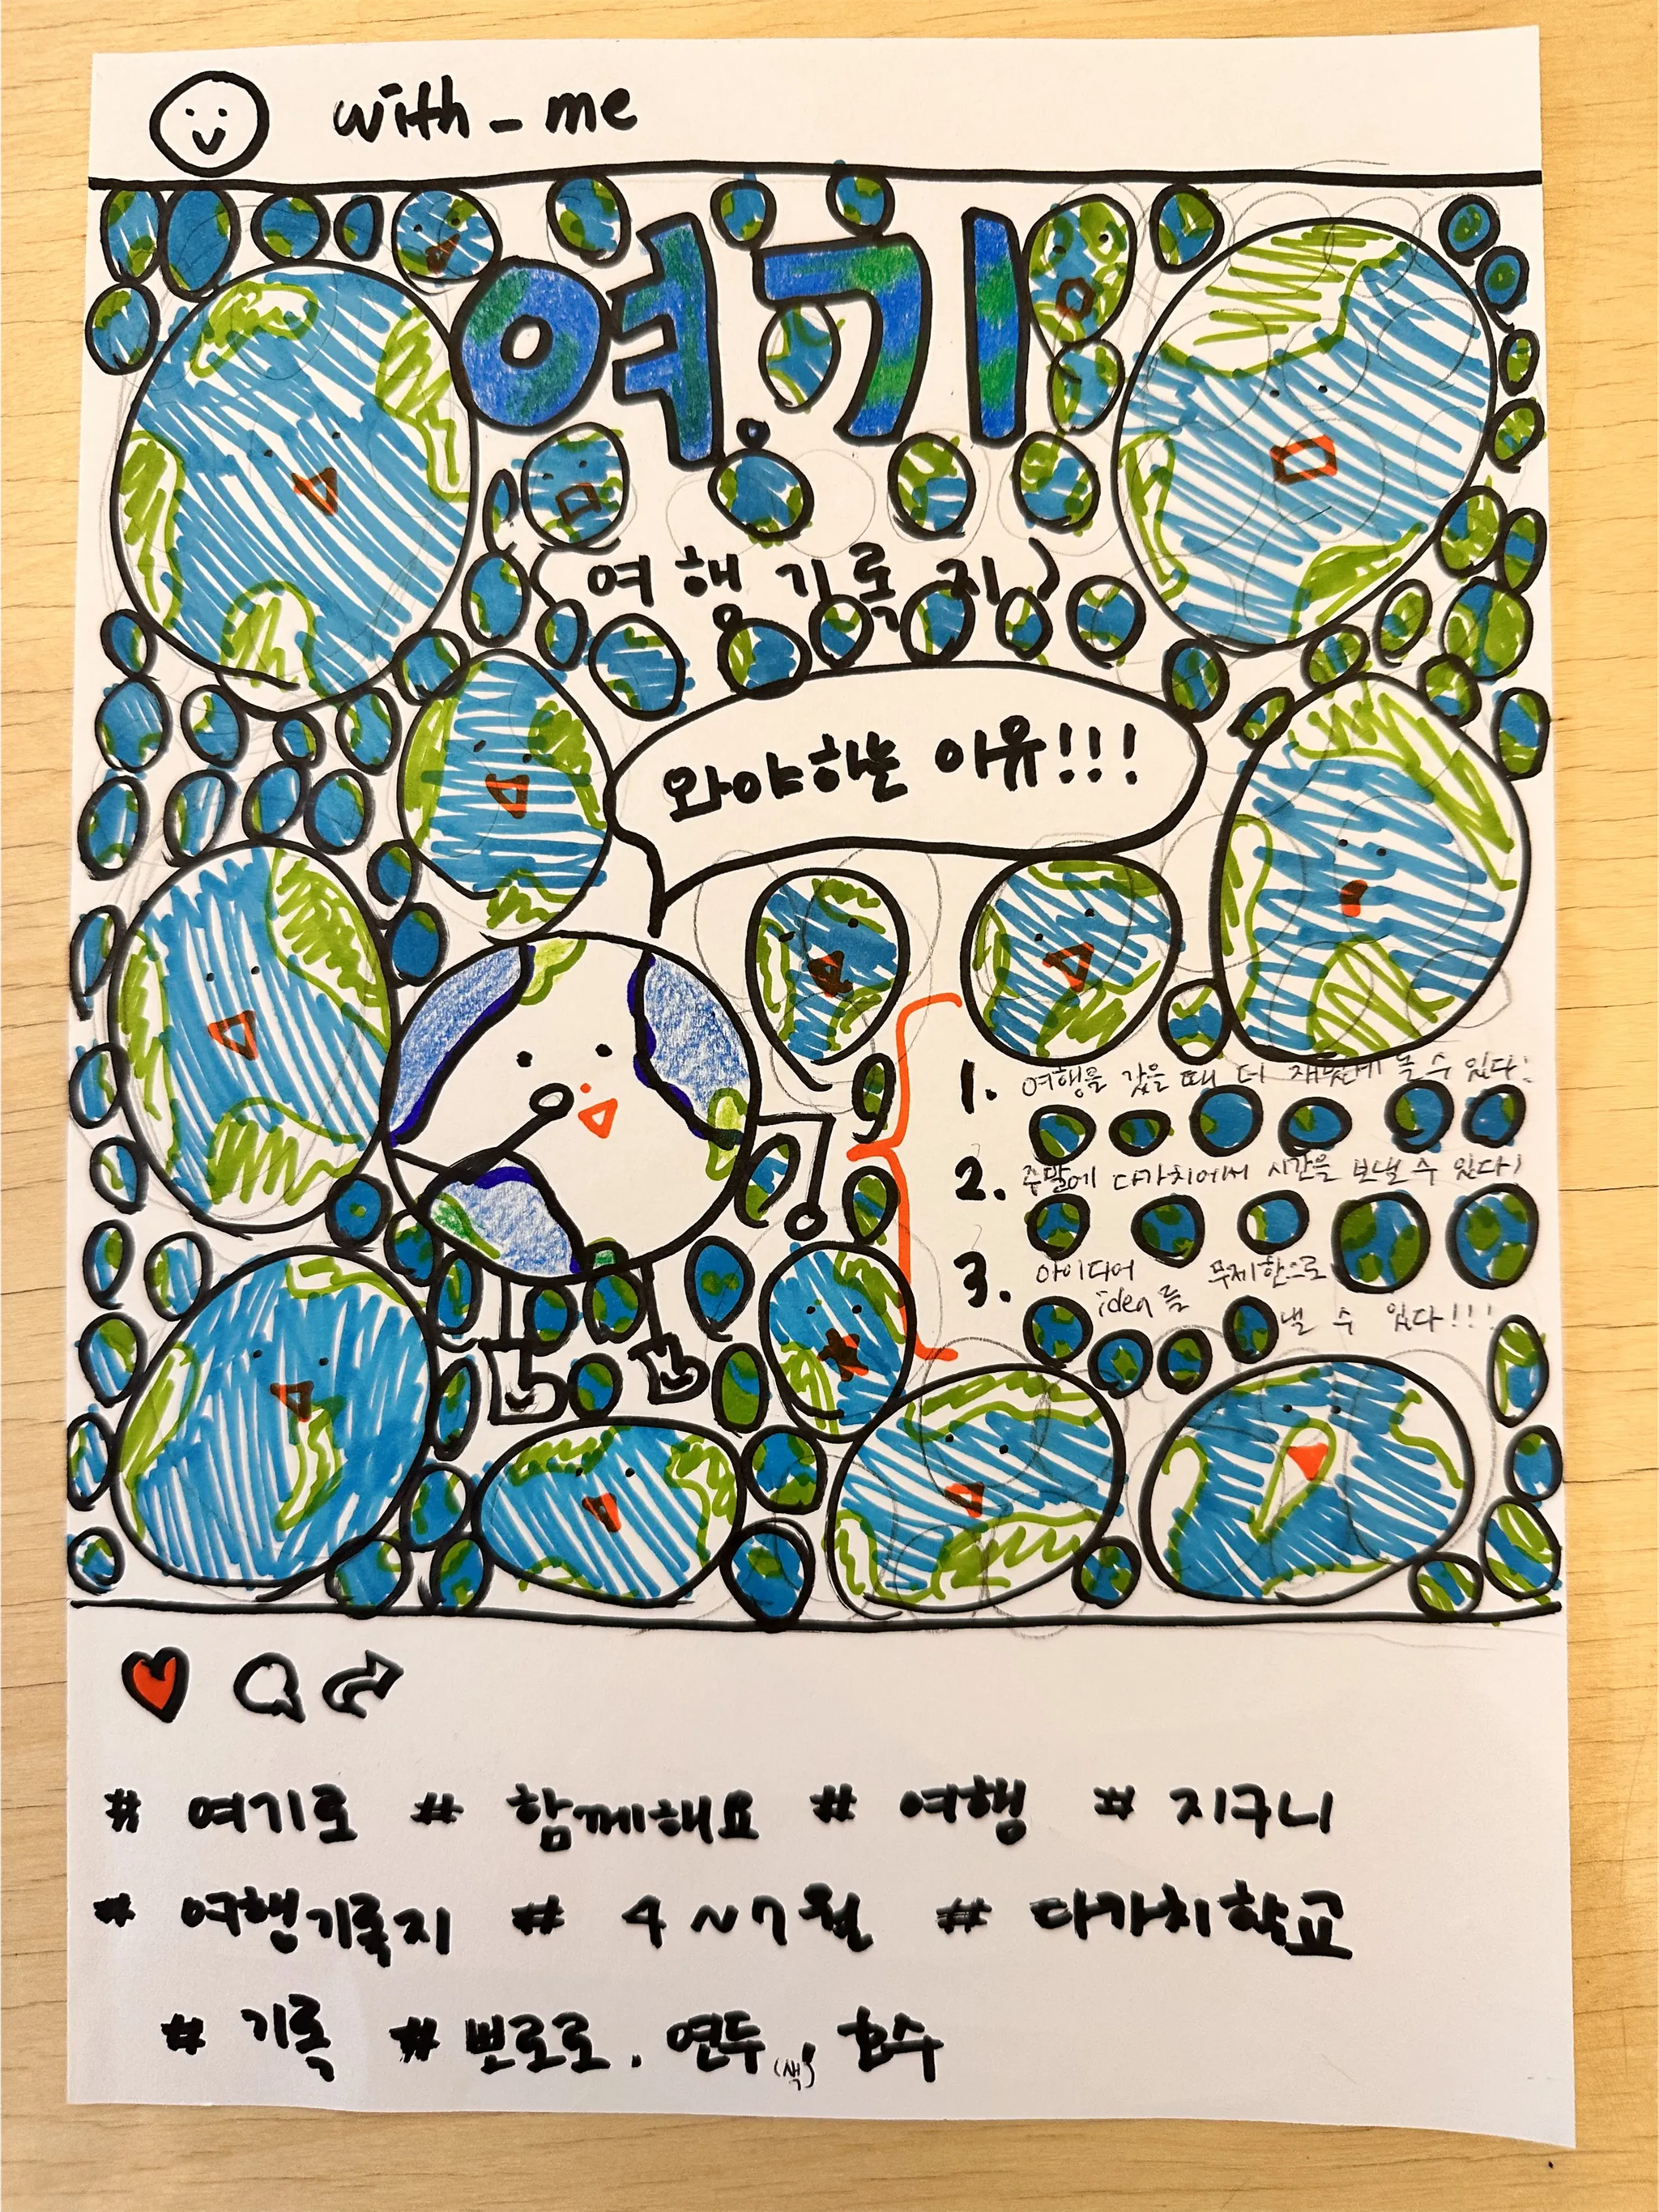 with_me
여기
(여행 기록 지)
와야하는 이유!!!
1. 여행을 갔을 때 더 재밌게 놀 수 있다!
2. 주말에 다가치에서 시간을 보낼 수 있다!
3. 아이디어 무제한으로
idea를 낼 수 있다!!!
# 여기로 # 함께해요 # 여행 # 지구니
# 여행기록지 # 4~7월 # 다가치학교
# 기록 # 뽀로로. 연두(색), 호수